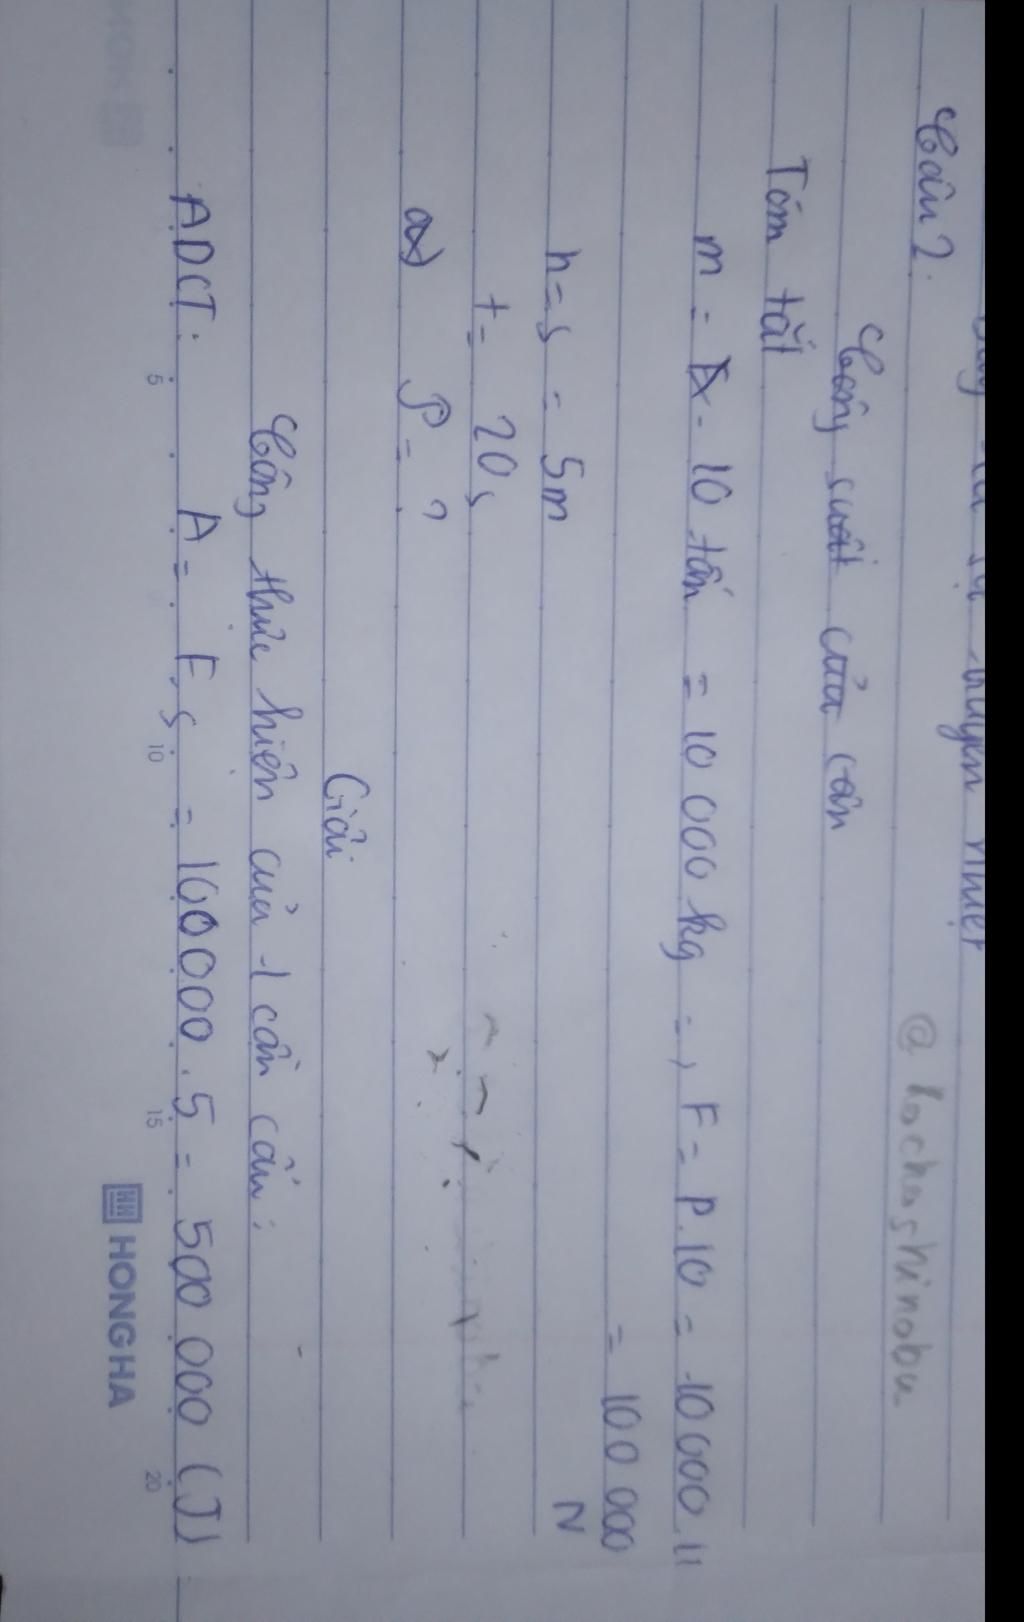 Câu 2:
@ kochoshinobu
Công suất của cần
Tóm tắt
m = 10 tấn = 10 000 kg =, F = P.10 = 10000.11
= 100 000
N
h = s = 5m
t = 20s
a) P = ?
Giải
Công thức hiện của 1 cần cẩu:
ADCT: A = F.s = 100000.5 = 500 000 (J)
5 10 15 20
HONG HA